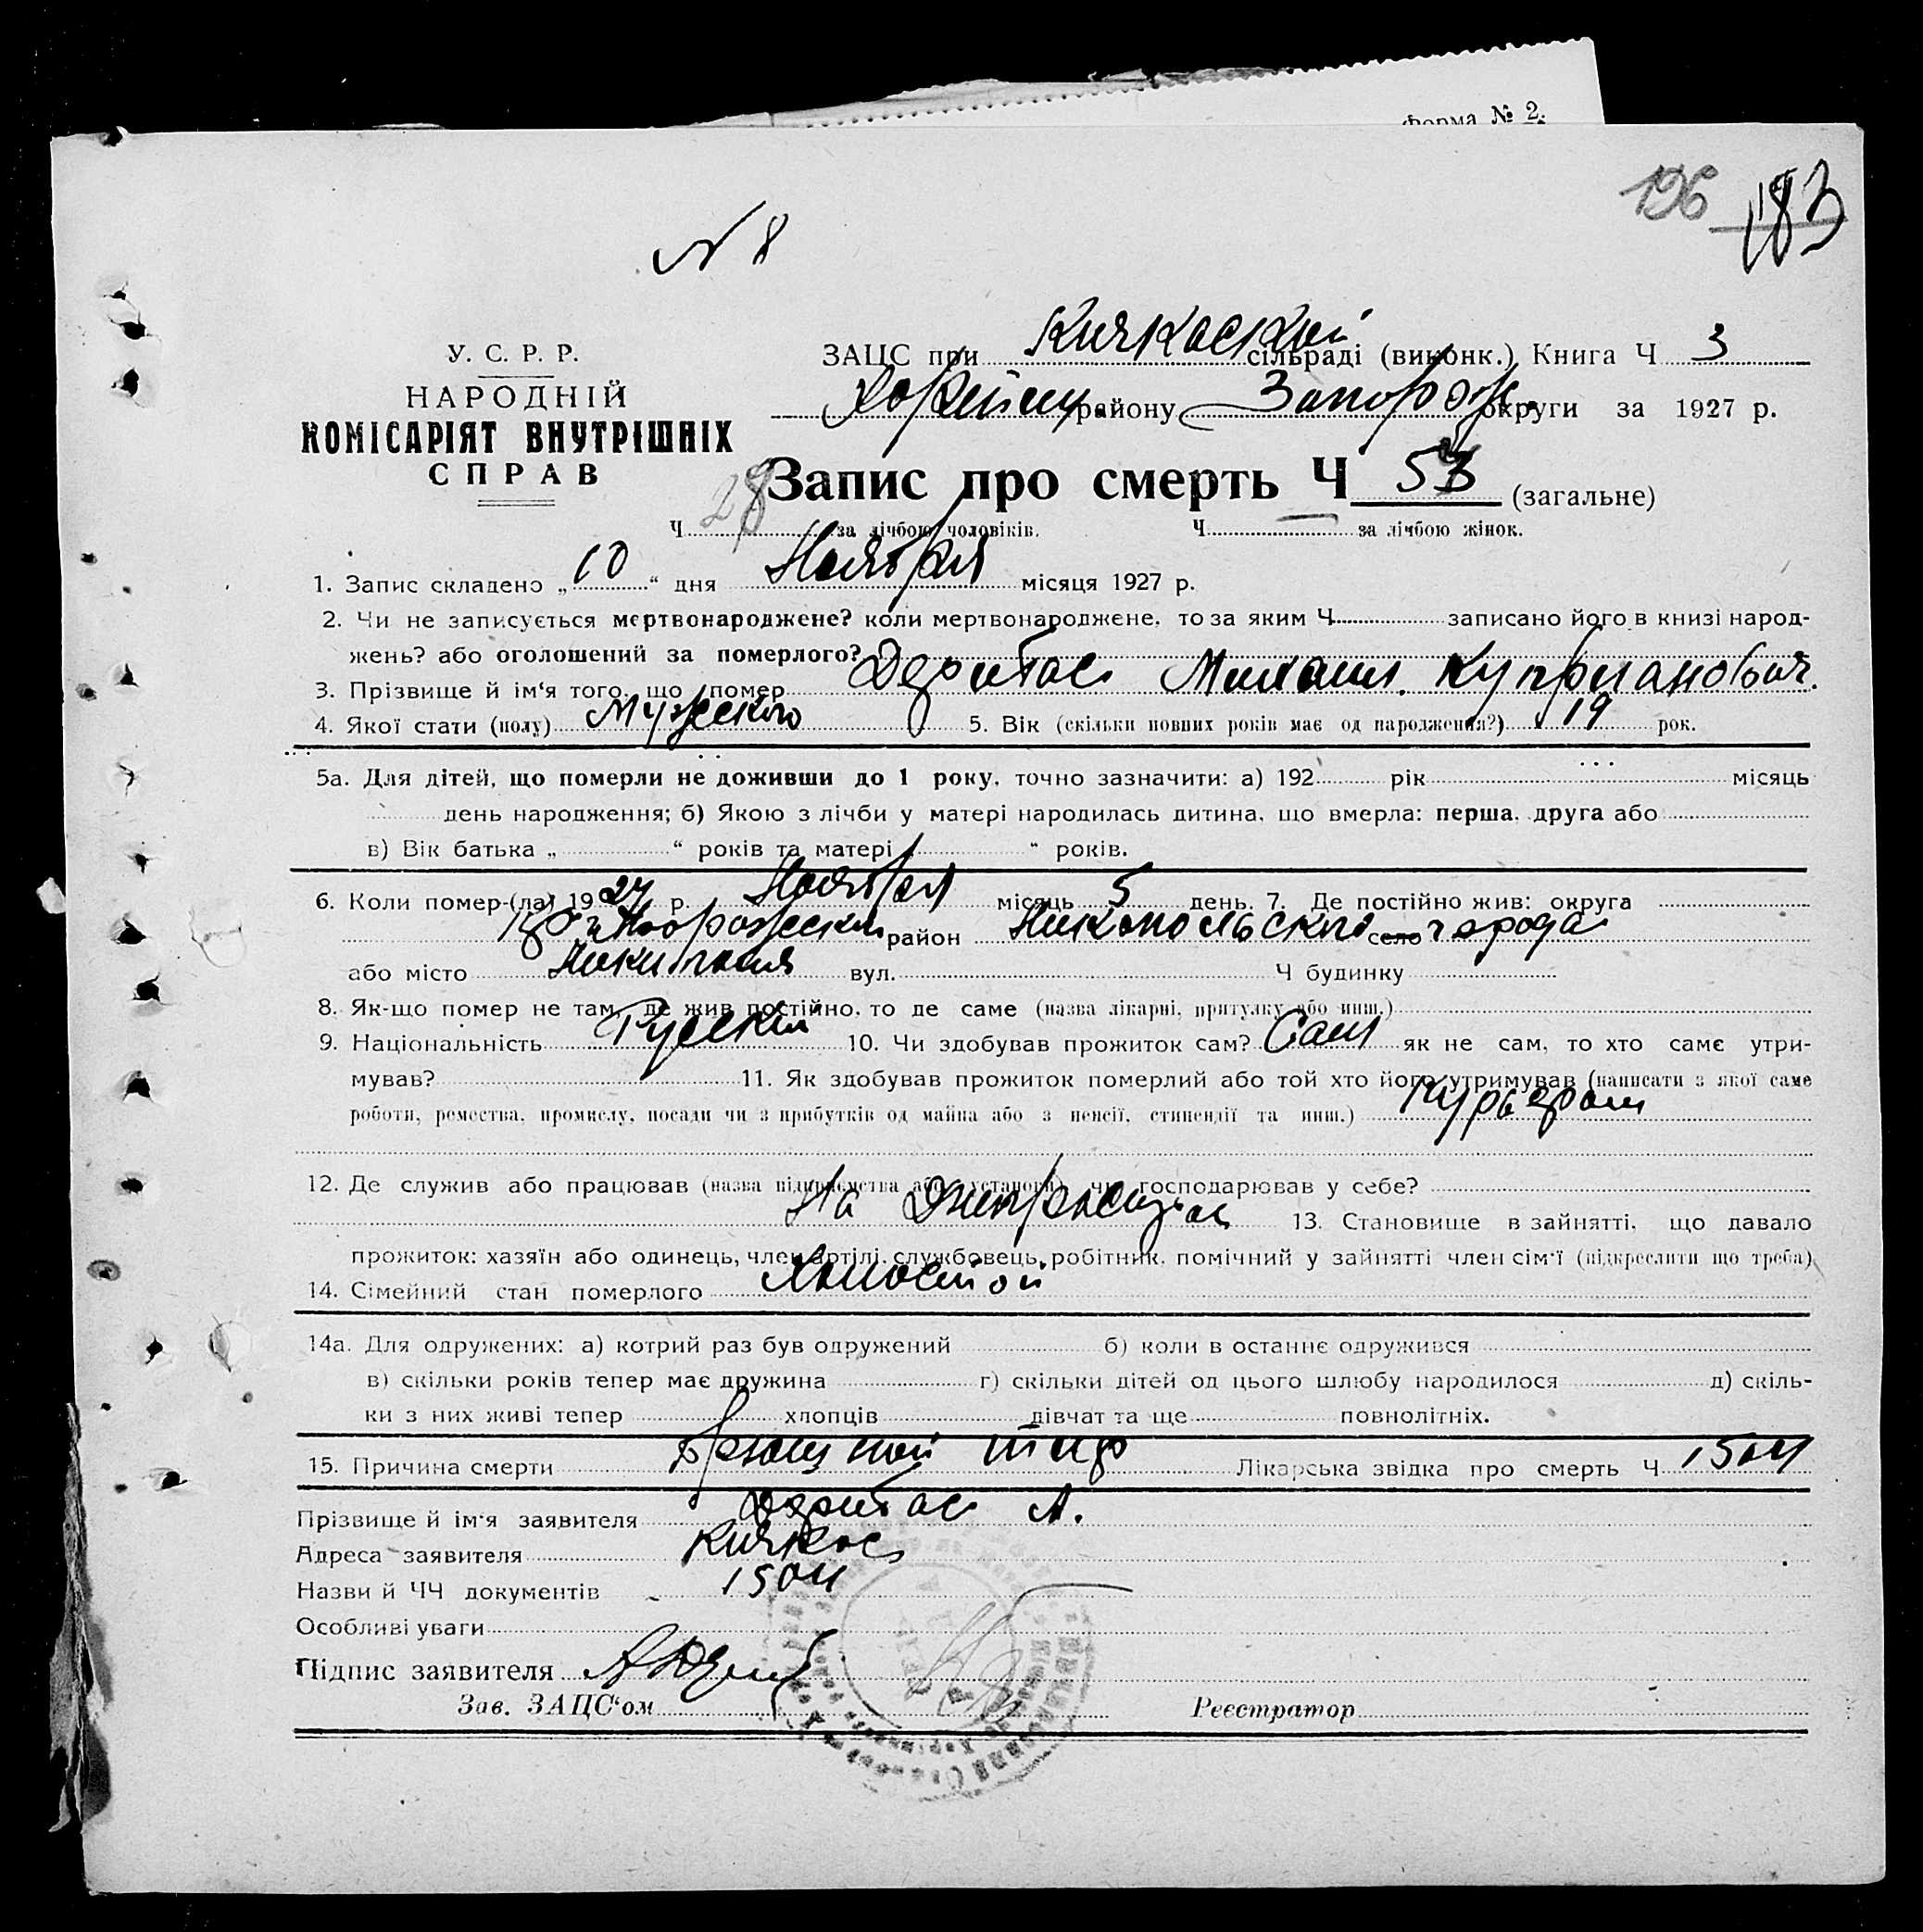 Форма № 2.
196 183
N 8
У. С. Р. Р.
НАРОДНІЙ
КОМІСАРІЯТ ВНУТРІШНІХ
СПРАВ
ЗАЦС при Кичкаской сільраді (виконк.) Книга Ч 3
району Запорож. округи за 1927 р.
Запис про смерть Ч 53 (загальне)
Ч 28 за лічбою чоловіків. Ч — за лічбою жінок.
1. Запис складено „10“ дня Ноября місяця 1927 р.
2. Чи не записується мертвонароджене? коли мертвонароджене, то за яким Ч записано його в книзі народ-
жень? або оголошений за померлого?
3. Прізвище й ім‘я того, що помер Деритас Михаил. Куприанович.
4. Якої стати (полу) Мужеского 5. Вік (скільки повних років має од народження?) 19 рок.
5а. Для дітей, що померли не доживши до 1 року, точно зазначити: а) 192 рік місяць
день народження; б) Якою з лічби у матері народилась дитина, що вмерла: перша, друга або
в) Вік батька „ “ років та матері „ “ років.
6. Коли помер-(ла) 1927 р. Ноября місяць 5 день. 7. Де постійно жив: округа
район Никопольского село города
або місто вул. Ч будинку
8. Як-що помер не там, де жив постійно, то де саме (назва лікарні, притулку або инш.)
9. Національність Руский 10. Чи здобував прожиток сам? Сам як не сам, то хто саме утри-
мував? 11. Як здобував прожиток померлий або той хто його утримував (написати з якої саме
роботи, ремества, промислу, посади чи з прибутків од майна або з пенсії, стипендії та инш.) Курьером
12. Де служив або працював (назва підприємства або установи), чи господарював у себе?
На 13. Становище в зайнятті, що давало
прожиток: хазяїн або одинець, член артілі, службовець, робітник, помічний у зайнятті член сім‘ї (підкреслити що треба)
14. Сімейний стан померлого Холостой
14а. Для одружених: а) котрий раз був одружений б) коли в останнє одружився
в) скільки років тепер має дружина г) скільки дітей од цього шлюбу народилося д) скіль-
ки з них живі тепер хлопців дівчат та ще повнолітніх.
15. Причина смерти Брюшной тиф Лікарська звідка про смерть Ч 1504
Прізвище й ім‘я заявителя Деритас А.
Адреса заявителя Кичкас
Назви й ЧЧ документів 1504
Особливі уваги
Підпис заявителя
Зав. ЗАЦС‘ом Реєстратор